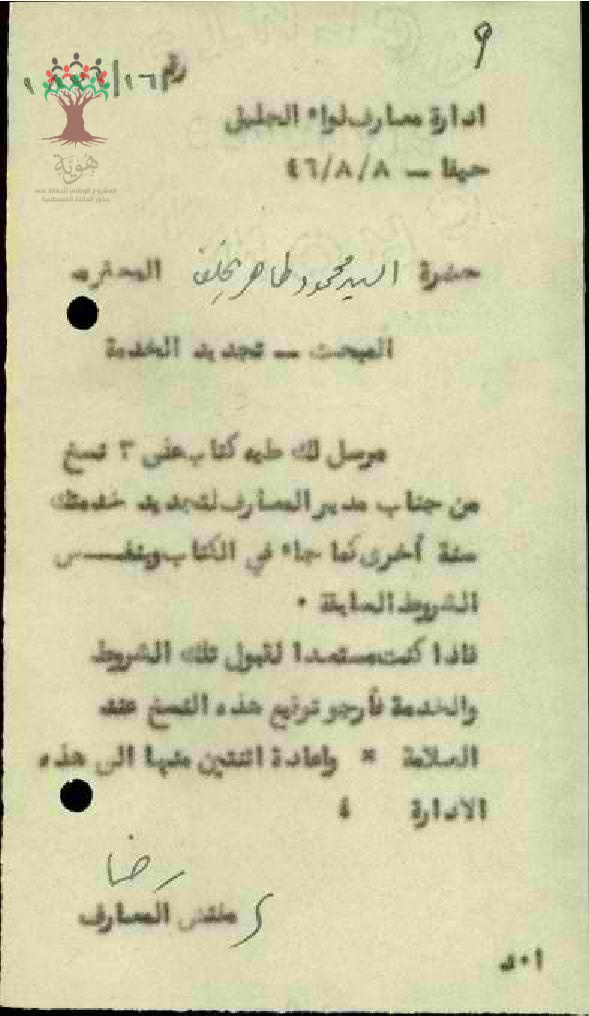 ٩
رقم ١٦/
ادارة معارف لواء الجليل
حيفا — ٤٦/٨/٨
هوية
المشروع الوطني للحفاظ على
جذور العائلة الفلسطينية
حضرة السيد محمود طاهر المحترم
المبحث — تجديد الخدمة
مرسل لك طيه كتاب على ٣ نسخ
من جناب مدير المعارف لتجديد خدمتك
سنة أخرى كما جاء في الكتاب وبنفس
الشروط السابقة .
فاذا كنت مستعدا لقبول تلك الشروط
والخدمة فأرجو توقيع هذه النسخ عند
العلامة × واعادة اثنتين منها الى هذه
الادارة ،
رضا
مفتش المعارف
ا٠د